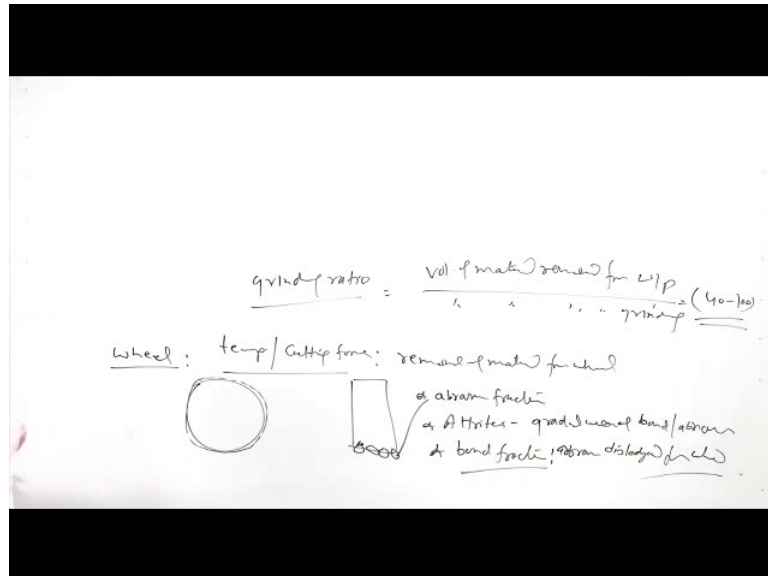 grinding ratio = vol. of material removed from w/p = (40-100)
" " " " grinding
Wheel: temp/Cutting force: removal of material from wheel
* abrasive fraction
* Attrition - gradual bond/abrasive
* bond fraction: abrasive dislodged